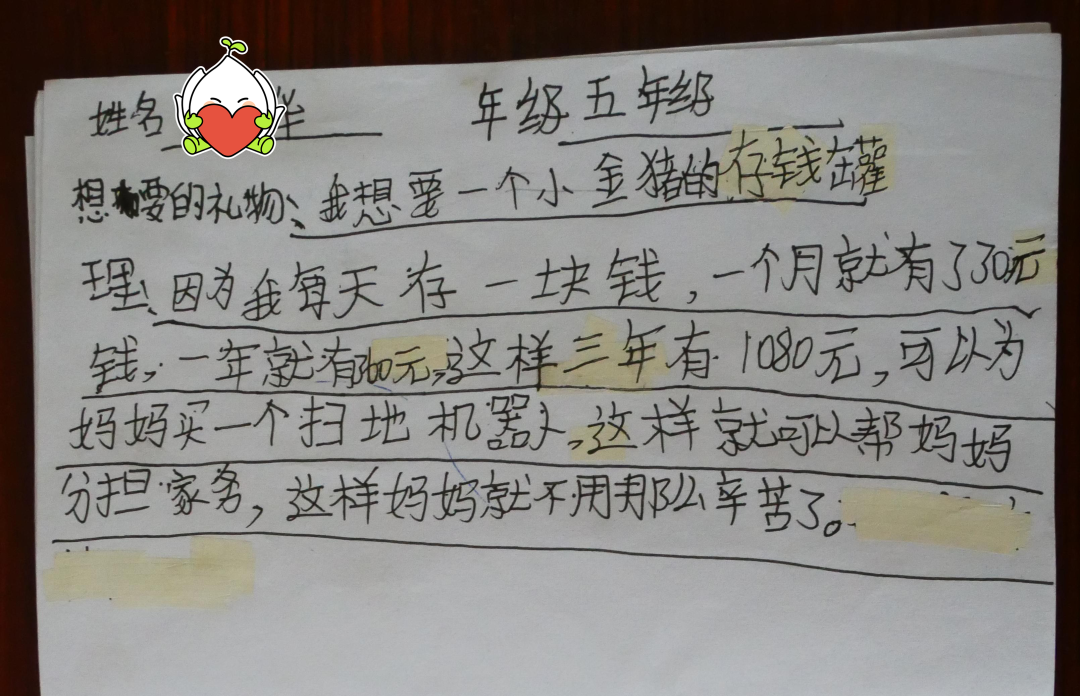 姓名 年级 五年级
想要的礼物:我想要一个小金猪的存钱罐
理:因为我每天存一块钱,一个月就有了30元
钱,一年就有360元,这样三年有1080元,可以为
妈妈买一个扫地机器人,这样就可以帮妈妈
分担家务,这样妈妈就不用那么辛苦了。